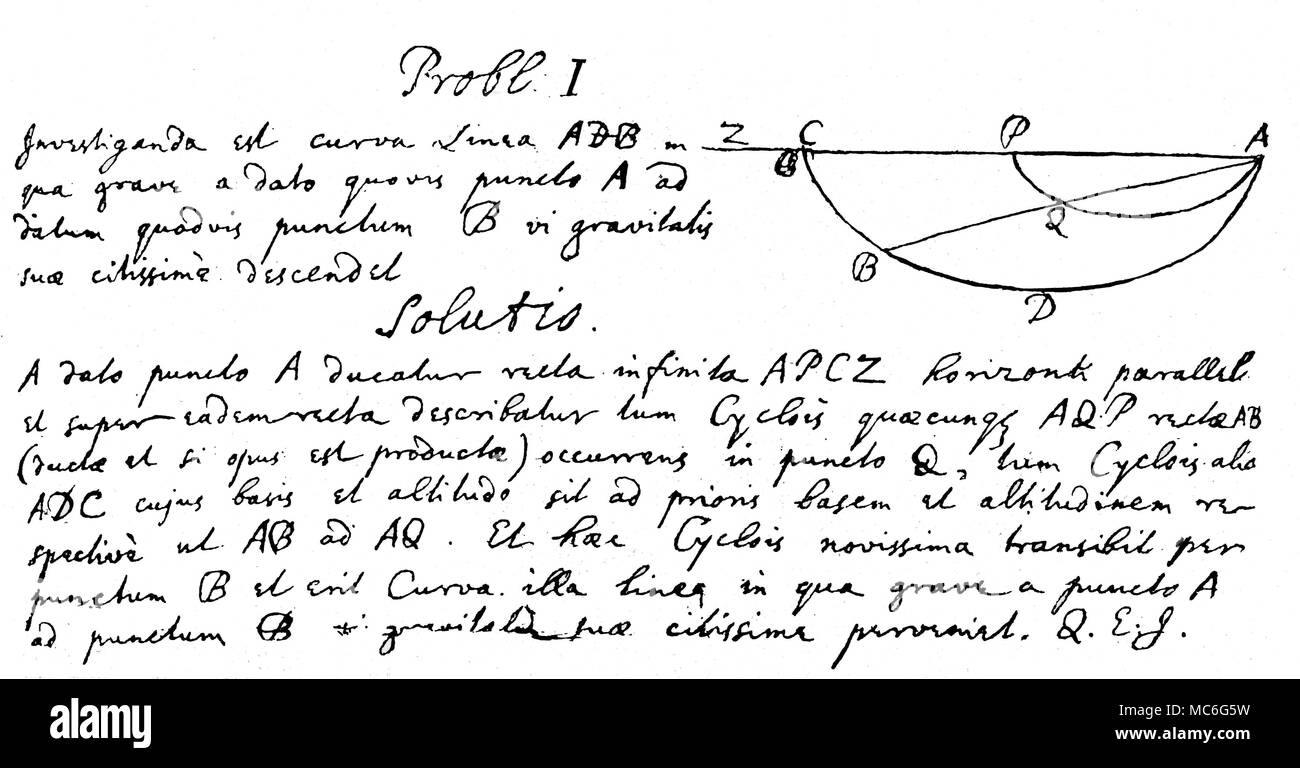 Probl. I
Investiganda est curva Linea ADB in
qua grave a dato quovis puncto A ad
datum quodvis punctum B vi gravitatis
suæ citissimè descendet
Z C P A
Q
B
D
Solutio.
A dato puncto A ducatur recta infinita APCZ horizonti parallela
et super eadem recta describatur tum Cyclois quæcunqꝫ AQP rectæ AB
(ductæ et si opus est productæ) occurrens in puncto Q, tum Cyclois alia
ADC cujus basis et altitudo sit ad prioris basem et altitudinem re-
spectivè ut AB ad AQ. Et hæc Cyclois novissima transibit per
punctum B et erit Curva illa linea in qua grave a puncto A
ad punctum B vi gravitatis suæ citissime perveniet. Q.E.I.
alamy
Image ID: MC6G5W
www.alamy.com